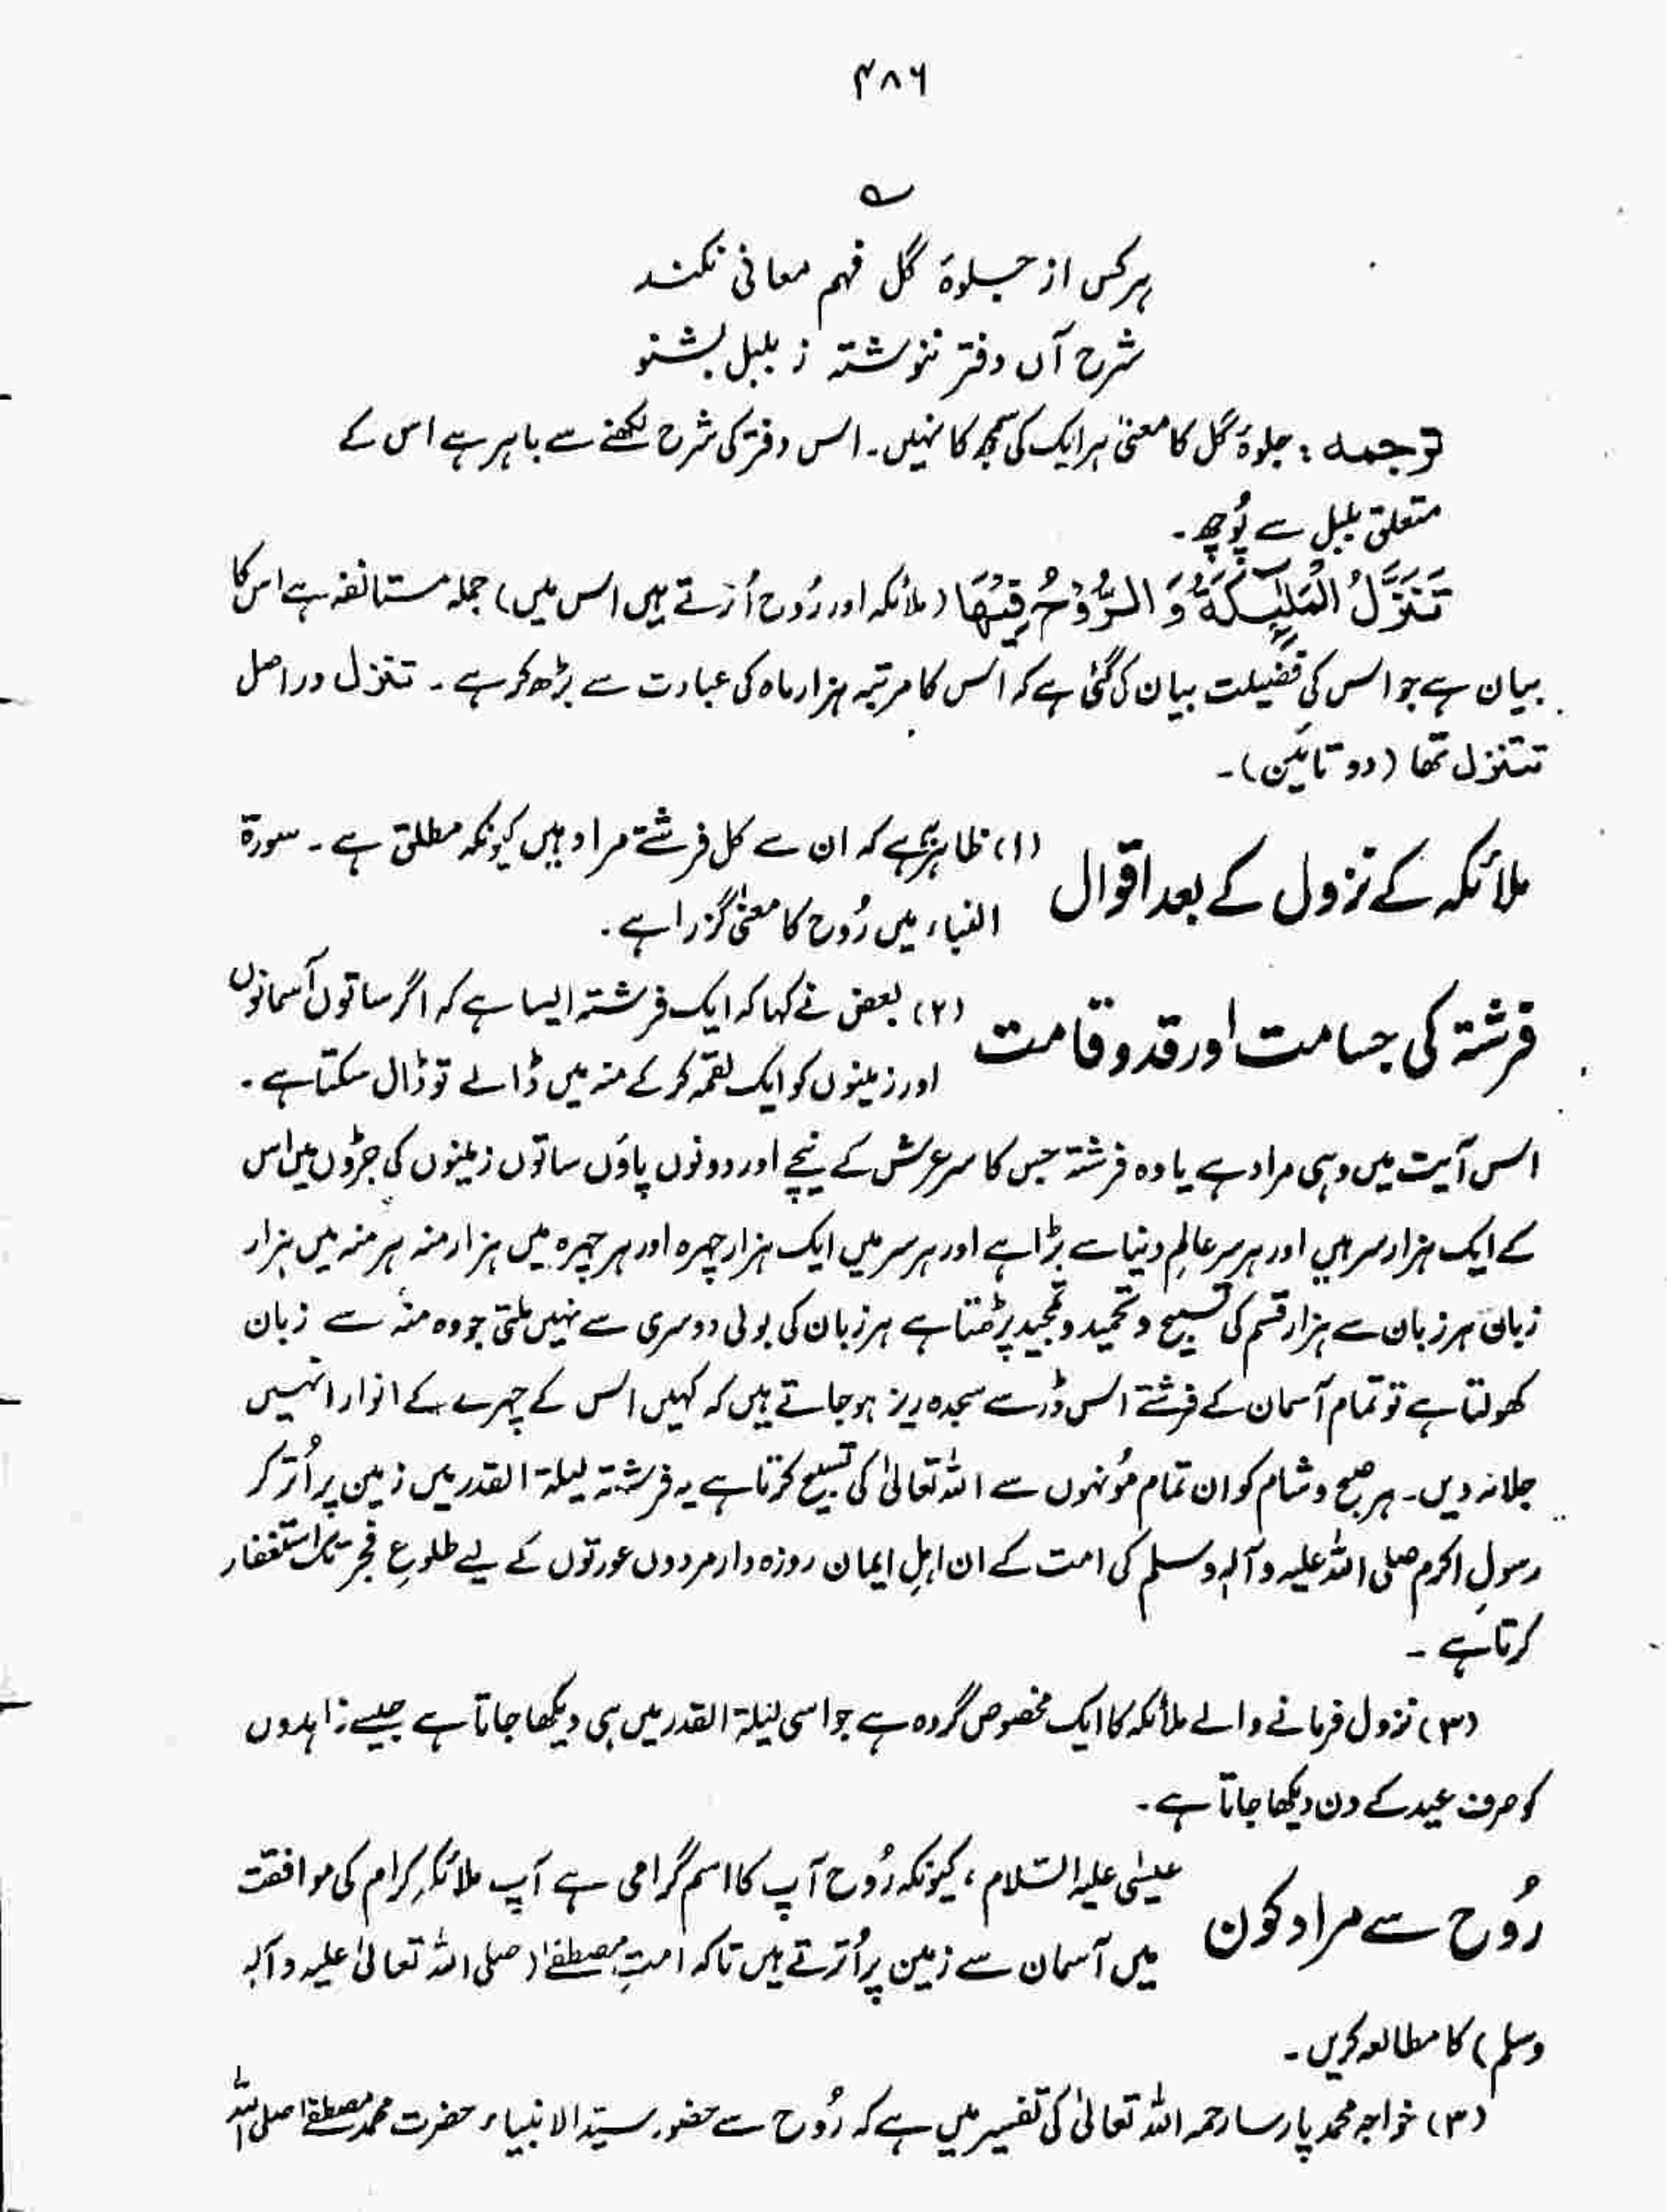 ۴۸۶
؎
ہرکس از جلوۂ گل فہم معانی نکند
شرح آں دفتر ننوشتہ ز بلبل بشنو
ترجمہ : جلوۂ گل کا معنیٰ ہر ایک کی سمجھ کا نہیں۔ اس دفتر کی شرح لکھنے سے باہر ہے اس کے
متعلق بلبل سے پُوچھ۔
تَنَزَّلُ الْمَلٰٓئِكَةُ وَ الرُّوْحُ فِیْهَا (ملائکہ اور رُوح اُترتے ہیں اس میں) جملہ مستانفہ ہے اس کا
بیان ہے جو اس کی فضیلت بیان کی گئی ہے کہ اس کا مرتبہ ہزار ماہ کی عبادت سے بڑھ کر ہے۔ تنزل دراصل
تتنزل تھا (دو تائیں)۔
ملائکہ کے نزول کے بعد اقوال
(۱) ظاہر ہے کہ ان سے کل فرشتے مراد ہیں کیونکہ مطلق ہے۔ سورۃ
النباء میں رُوح کا معنیٰ گزرا ہے۔
فرشتہ کی جسامت اور قد و قامت
(۲) بعض نے کہا کہ ایک فرشتہ ایسا ہے کہ اگر ساتوں آسمانوں
اور زمینوں کو ایک لقمہ کر کے منہ میں ڈالے تو ڈال سکتا ہے۔
اس آیت میں وہی مراد ہے یا وہ فرشتہ جس کا سر عرش کے نیچے اور دونوں پاؤں ساتوں زمینوں کی جڑوں میں اس
کے ایک ہزار سر ہیں اور ہر سر عالمِ دنیا سے بڑا ہے اور ہر سر میں ایک ہزار چہرہ اور ہر چہرہ میں ہزار منہ ہر منہ میں ہزار
زبان ہر زبان سے ہزار قسم کی تسبیح و تحمید و تمجید پڑھتا ہے ہر زبان کی بولی دوسری سے نہیں ملتی جو وہ منہ سے زبان
کھولتا ہے تو تمام آسمان کے فرشتے اس ڈر سے سجدہ ریز ہو جاتے ہیں کہ کہیں اس کے چہرے کے انوار انہیں
جلا نہ دیں۔ ہر صبح و شام کو ان تمام مُونہوں سے اللہ تعالیٰ کی تسبیح کرتا ہے یہ فرشتہ لیلۃ القدر میں زمین پر اُتر کر
رسولِ اکرم صلی اللہ علیہ وآلہٖ وسلم کی امت کے ان اہلِ ایمان روزہ دار مردوں عورتوں کے لیے طلوعِ فجر تک استغفار
کرتا ہے۔
(۳) نزول فرمانے والے ملائکہ کا ایک مخصوص گروہ ہے جو اسی لیلۃ القدر میں ہی دیکھا جاتا ہے جیسے زاہدوں
کو صرف عید کے دن دیکھا جاتا ہے۔
رُوح سے مراد کون
عیسٰی علیہ السّلام، کیونکہ رُوح آپ کا اسم گرامی ہے آپ ملائکہ کرام کی موافقت
میں آسمان سے زمین پر اُترتے ہیں تاکہ امتِ مصطفےٰ (صلی اللہ تعالیٰ علیہ وآلہٖ
وسلم) کا مطالعہ کریں۔
(۳) خواجہ محمد پارسا رحمہ اللہ تعالیٰ کی تفسیر میں ہے کہ رُوح سے حضور سیّد الانبیاء حضرت محمد مصطفےٰ صلی اللہ